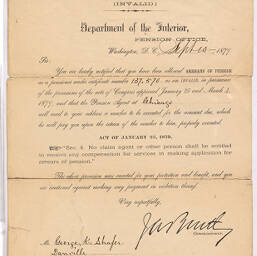 (INVALID)
Department of the Interior,
PENSION OFFICE,
Washington, D. C., Sept 10 1879
Sir:
You are hereby notified that you have been allowed ARREARS OF PENSION
as a pensioner under certificate number 157,576, as an invalid, in pursuance
of the provisions of the acts of Congress approved January 25 and March 3,
1879, and that the Pension Agent at Chicago
will send to your address a voucher to be executed for the amount due, which
he will pay you upon the return of the voucher to him, properly executed.
ACT OF JANUARY 25, 1879.
"Sec. 4. No claim agent or other person shall be entitled
to receive any compensation for services in making application for
arrears of pension."
The above provision was enacted for your protection and benefit, and you
are cautioned against making any payment in violation thereof.
Very respectfully,
Commissioner.
George K. Shafer
Danville